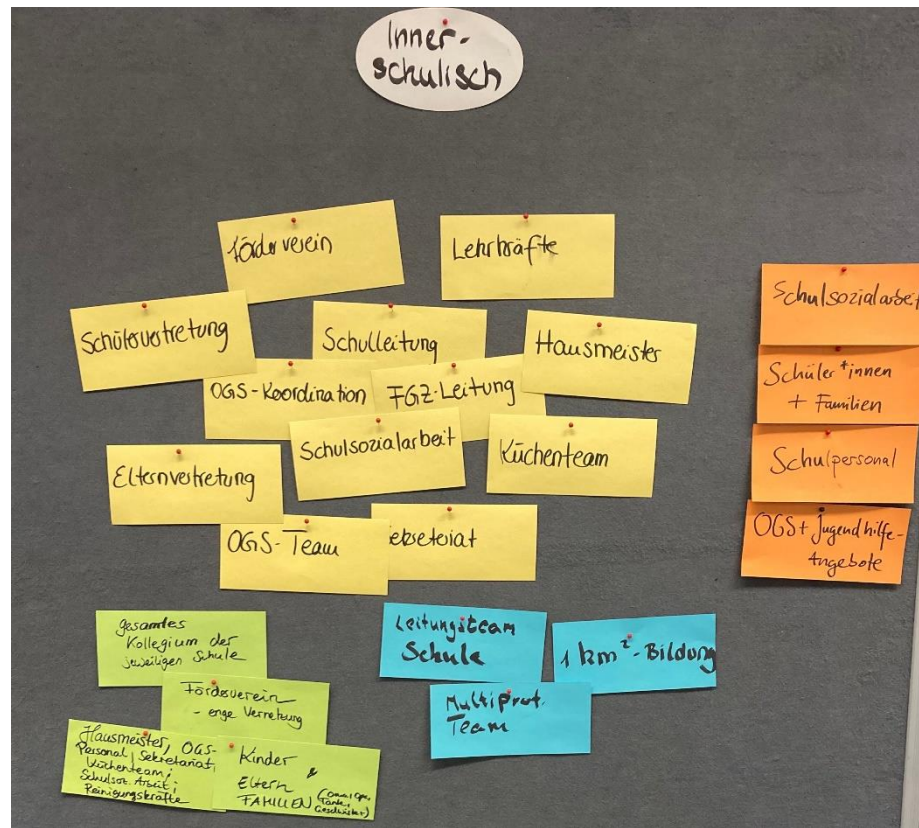 Inner-
schulisch
Förderverein
Lehrkräfte
Schülervertretung
Schulleitung
Hausmeister
OGS-Koordination
FGZ-Leitung
Schulsozialarbeit
Küchenteam
Elternvertretung
OGS-Team
ekreteriat
Schulsozialarbeit
Schüler*innen
+ Familien
Schulpersonal
OGS + Jugendhilfe-
Angebote
gesamtes
Kollegium der
jeweiligen Schule
Förderverein
- enge Vernetzung
Hausmeister, OGS-
Personal, Sekretariat,
Küchenteam;
Schulsoz. Arbeit;
Reinigungskräfte
Kinder
&
Eltern
FAMILIEN (Oma, Opa,
Tante,
Geschwister)
Leitungsteam
Schule
1 km²-Bildung
Multiprof.
Team